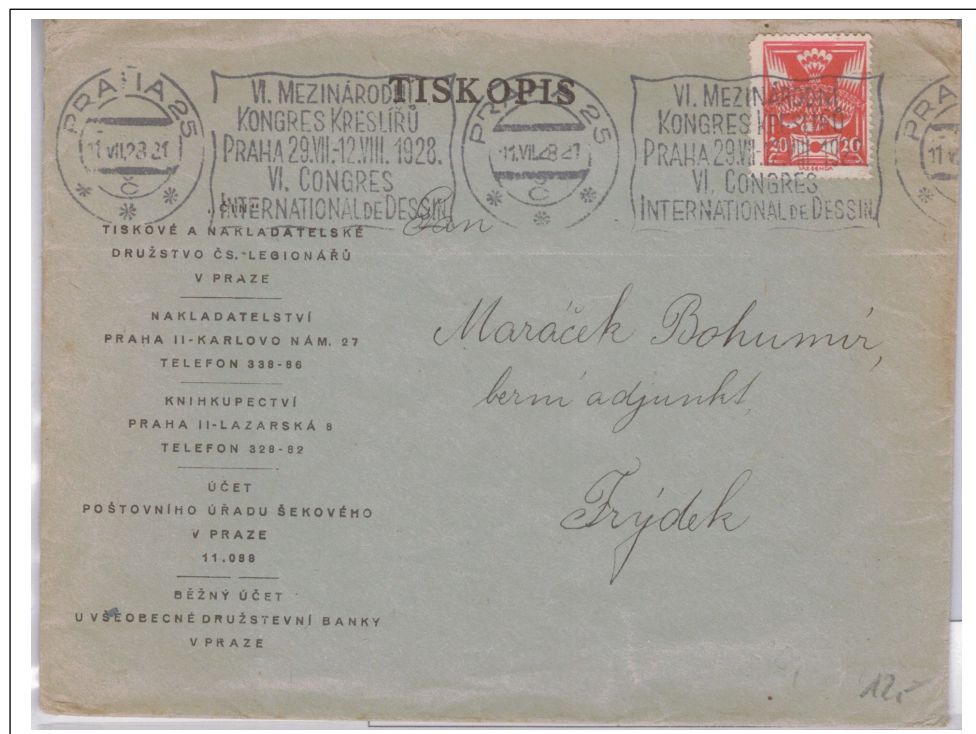 TISKOPIS
PRAHA 25
11.VII.28-21
Č
VI. MEZINÁRODNÍ
KONGRES KRESLÍŘŮ
PRAHA 29.VII.-12.VIII. 1928.
VI. CONGRES
INTERNATIONAL DE DESSIN
PRAHA 25
11.VII.28-21
Č
VI. MEZINÁRODNÍ
KONGRES KRESLÍŘŮ
PRAHA 29.VII.-
VI. CONGRES
INTERNATIONAL DE DESSIN
20 20
PRA
11 V
TISKOVÉ A NAKLADATELSKÉ
DRUŽSTVO ČS. LEGIONÁŘŮ
V PRAZE
NAKLADATELSTVÍ
PRAHA II-KARLOVO NÁM. 27
TELEFON 338-86
KNIHKUPECTVÍ
PRAHA II-LAZARSKÁ 8
TELEFON 328-82
ÚČET
POŠTOVNÍHO ÚŘADU ŠEKOVÉHO
V PRAZE
11.088
BĚŽNÝ ÚČET
U VŠEOBECNÉ DRUŽSTEVNÍ BANKY
V PRAZE
Pan
Maráček Bohumír,
berní adjunkt,
Frýdek
12,-